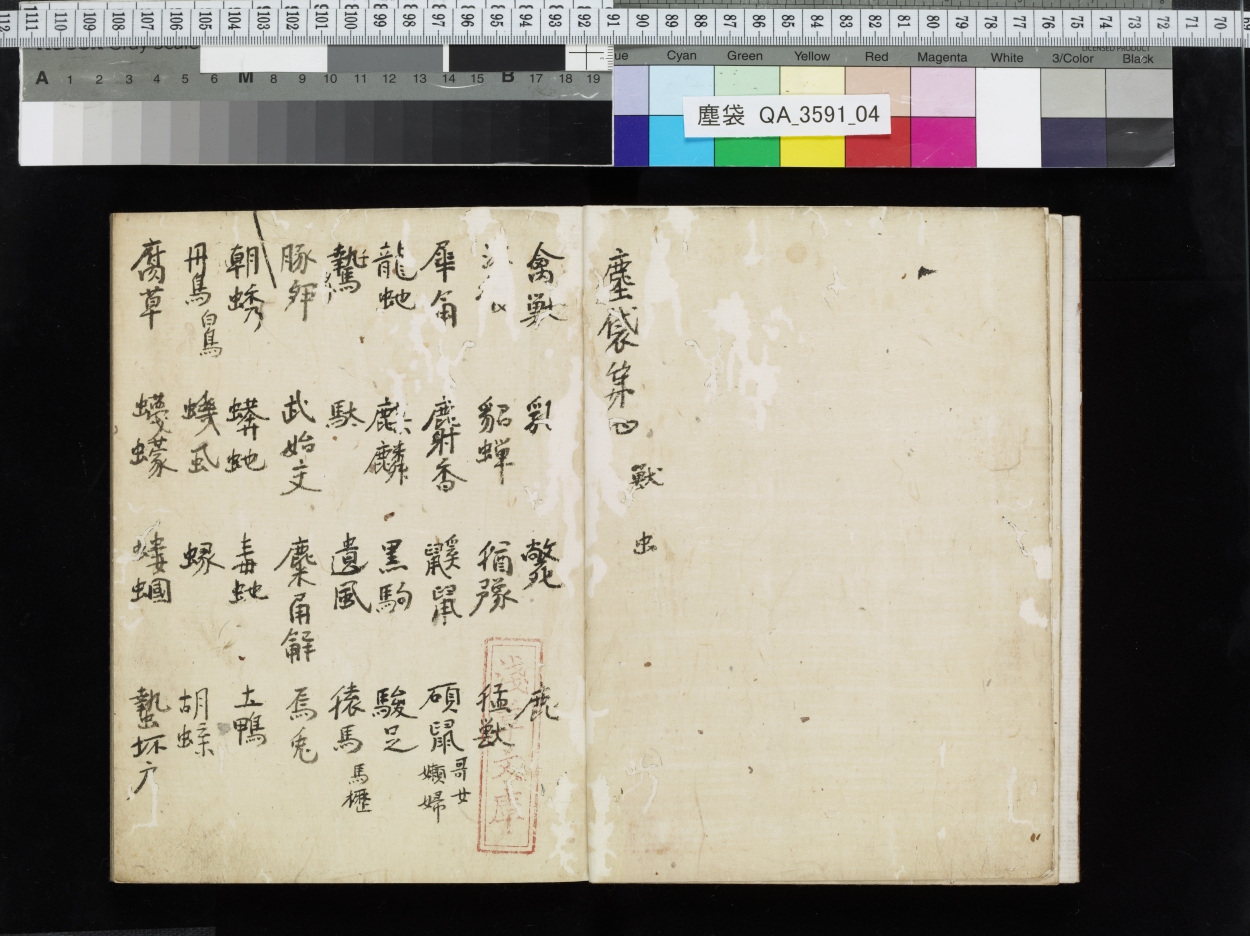 112 111 110 109 108 107 106 105 104 103 102 101 100 99 98 97 96 95 94 93 92 91 90 89 88 87 86 85 84 83 82 81 80 79 78 77 76 75 74 73 72 71 70 69
LICENSED PRODUCT
Cyan Green Yellow Red Magenta White 3/Color Black
A 1 2 3 4 5 6 M 8 9 10 11 12 13 14 15 B 17 18 19
塵袋 QA_3591_04
塵袋第四 獸 虫
禽獣 乳 斃 鹿
貂蟬 猶豫 猛獣
犀角 麝香 鼷鼠 碩鼠 哥女 嬾婦
龍虵 麒麟 黒駒 駿足
騺 駄 遺風 猿馬 馬櫪
豚 武始文 麋角解 烏兎
朝蜏 蟒虵 毒虵 土鴨
丹鳥 白鳥 蟣虱 蝝 胡蝶
腐草 蠛蠓 螻蟈 蟄坏戸